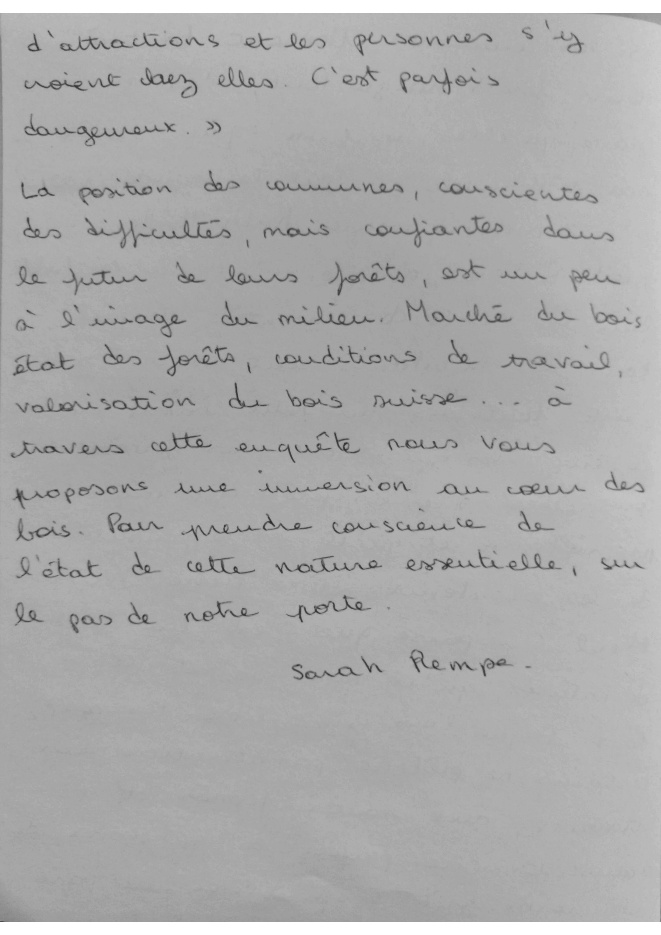 d'attractions et les personnes s'y
croient chez elles. C'est parfois
dangereux. »
La position des communes, conscientes
des difficultés, mais confiantes dans
le futur de leurs forêts, est un peu
à l'image du milieu. Marché du bois
état des forêts, conditions de travail,
valorisation du bois suisse... à
travers cette enquête nous vous
proposons une immersion au cœur des
bois. Pour prendre conscience de
l'état de cette nature essentielle, sur
le pas de notre porte.
Sarah Rempe.